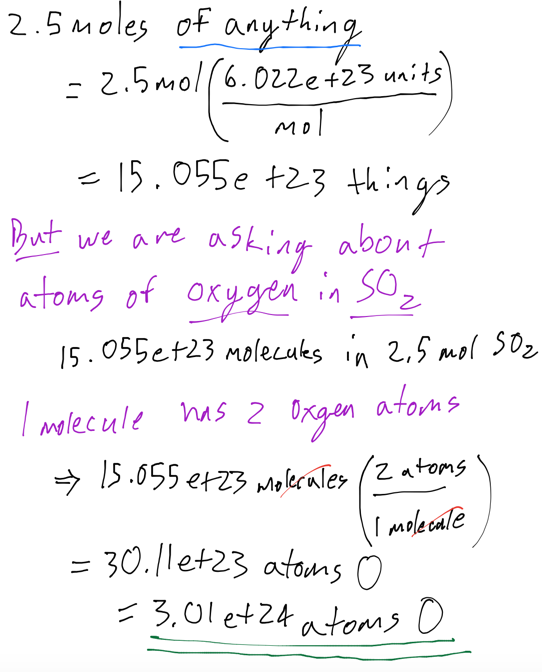 2.5 moles of anything
= 2.5 mol (6.022e+23 units / mol)
= 15.055e+23 things
But we are asking about
atoms of oxygen in SO₂
15.055e+23 molecules in 2.5 mol SO₂
1 molecule has 2 oxgen atoms
⇒ 15.055e+23 molecules (2 atoms / 1 molecule)
= 30.11e+23 atoms O
= 3.01e+24 atoms O